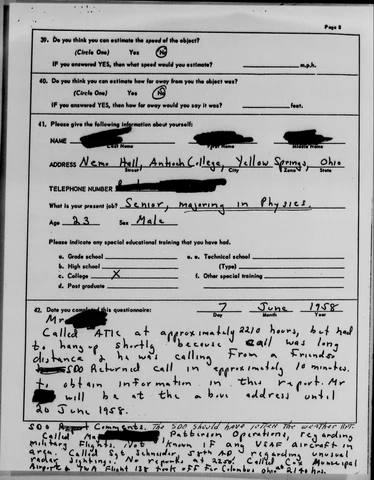 Page 8
39. Do you think you can estimate the speed of the object?
(Circle One) Yes No
IF you answered YES, then what speed would you estimate? m.p.h.
40. Do you think you can estimate how far away from you the object was?
(Circle One) Yes No
IF you answered YES, then how far away would you say it was? feet.
41. Please give the following information about yourself:
NAME
Last Name First Name Middle Name
ADDRESS Nemo Hall, Antioch College, Yellow Springs, Ohio
Street City Zone State
TELEPHONE NUMBER
What is your present job? Senior, majoring in Physics.
Age 23 Sex Male
Please indicate any special educational training that you have had.
a. Grade school e. Technical school
b. High school (Type)
c. College X f. Other special training
d. Post graduate
42. Date you completed this questionnaire: 7 June 1958
Day Month Year
Mr
Called ATIC at approximately 2210 hours, but had
to hang up shortly because call was long
distance & he was calling from a friends
SDO Returned call in approximately 10 minutes.
to obtain information in this report. Mr
will be at the above address until
20 June 1958.
SDO Comments. The SDO should have
Called Maj , Patterson Operations, regarding
Military Flights. Not known if any USAF aircraft in
area. Called Sgt Schneider, 58th AD. regarding unusual
radar sightings. No reports at 2250. Called Cox Municipal
Airport & TWA Flight 138 took off for Columbus Ohio at 2140 hrs.